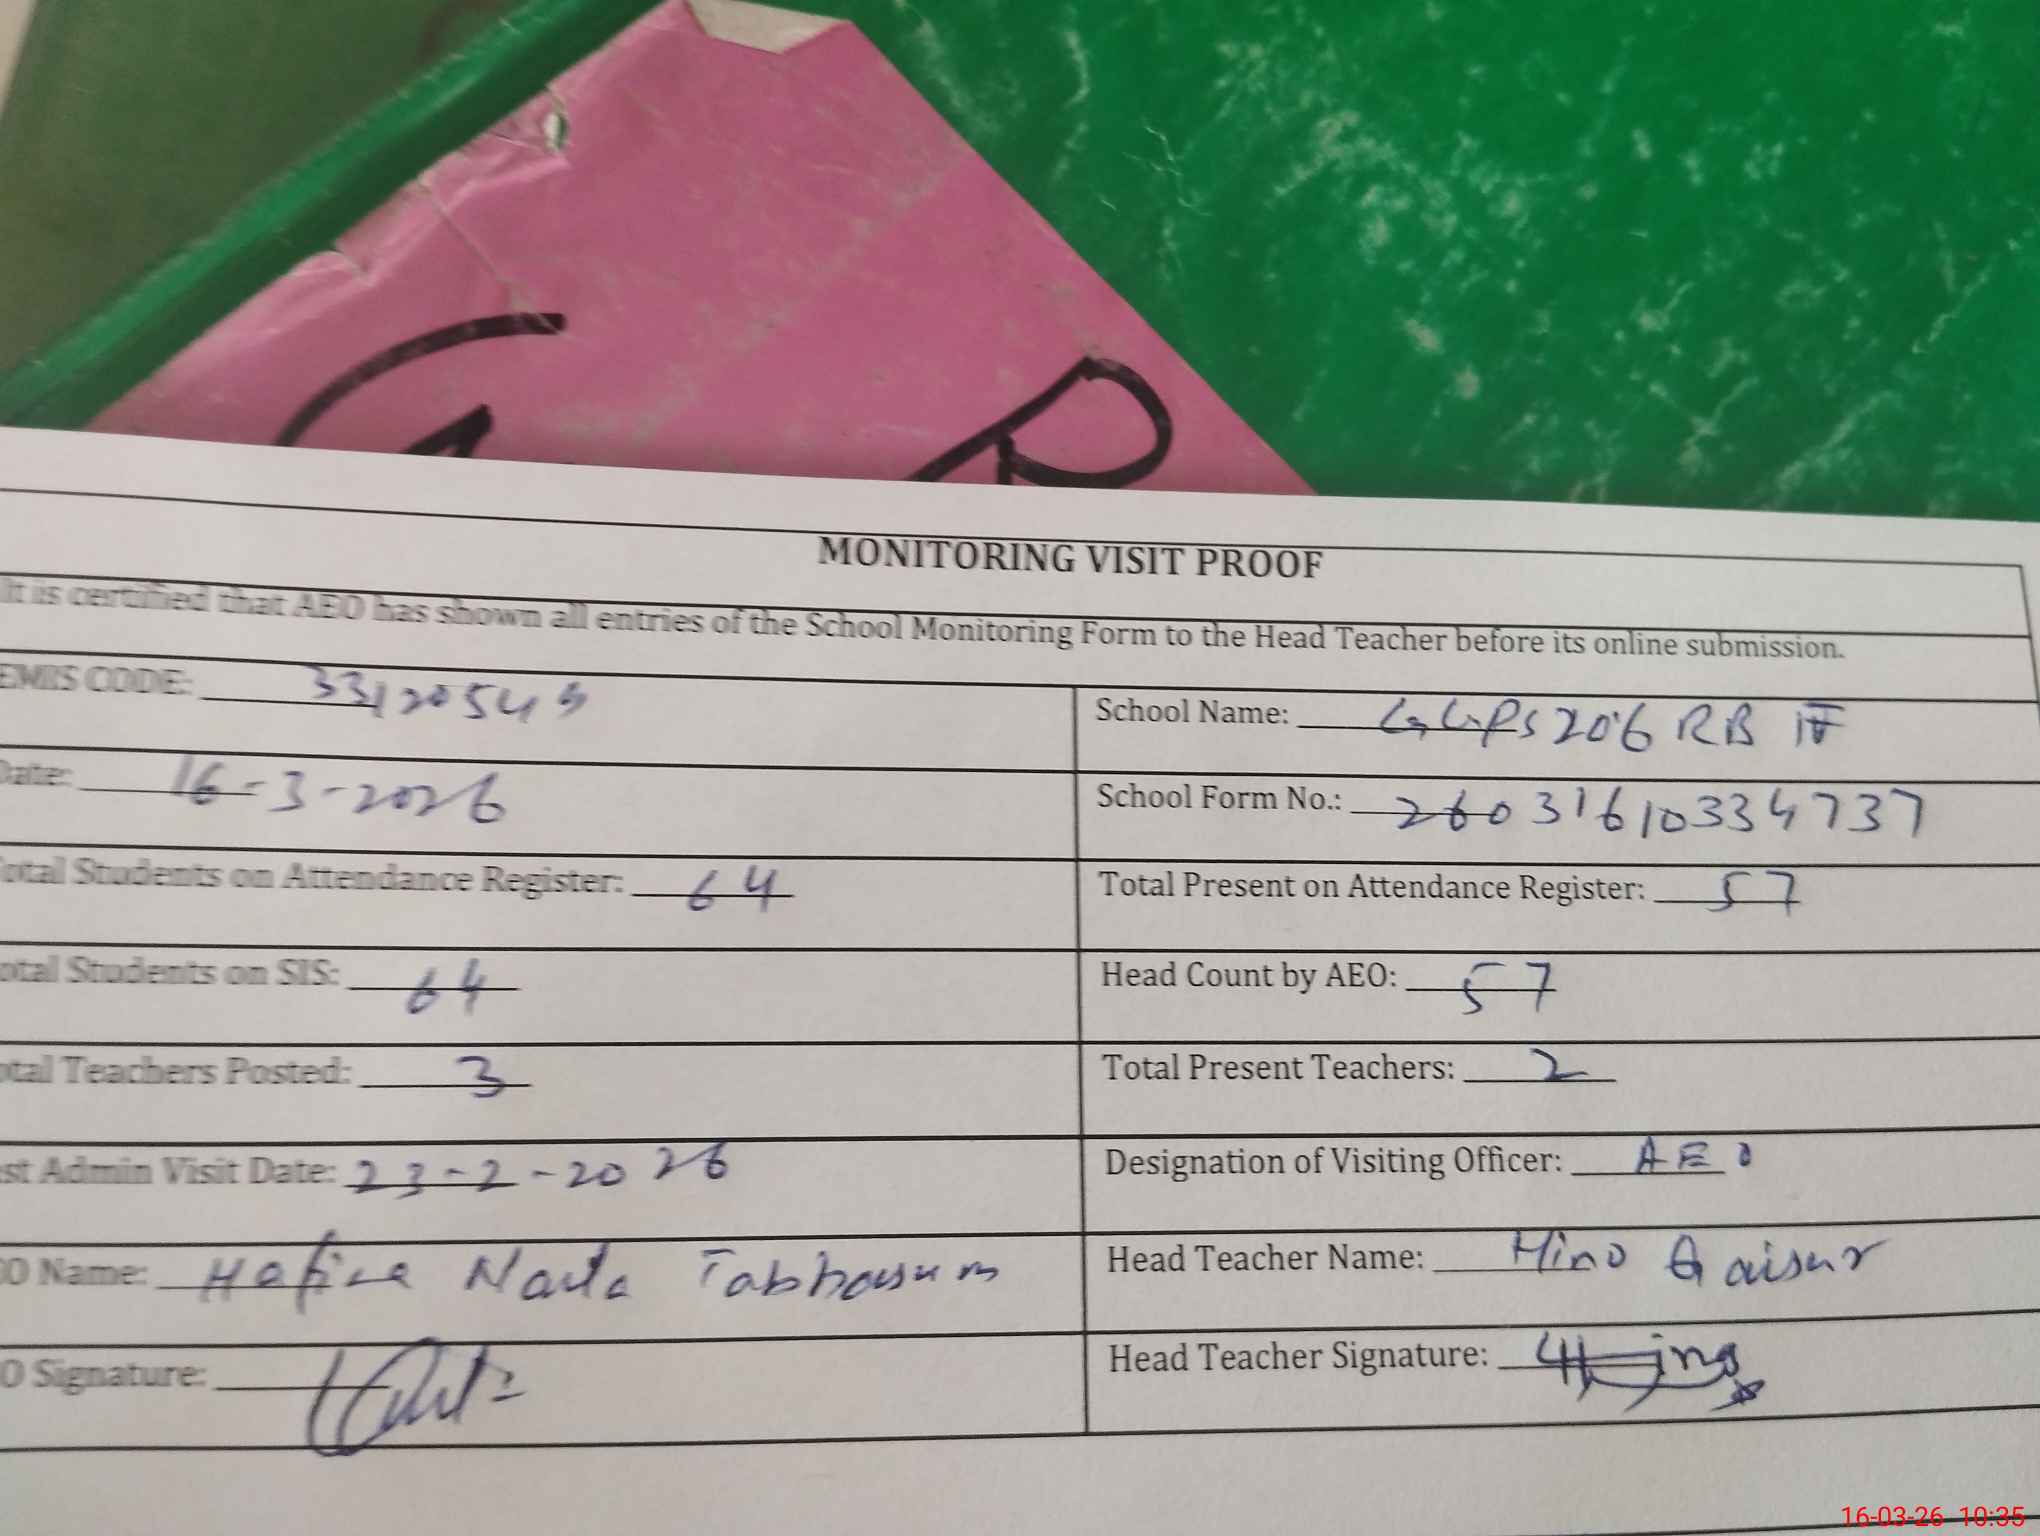 G R
MONITORING VISIT PROOF
It is certified that AEO has shown all entries of the School Monitoring Form to the Head Teacher before its online submission.
EMIS CODE: 33120545
School Name: GGPS 206 RB IV
Date: 16-3-2026
School Form No.: 26031610334737
otal Students on Attendance Register: 64
Total Present on Attendance Register: 57
otal Students on SIS: 64
Head Count by AEO: 57
otal Teachers Posted: 3
Total Present Teachers: 2
st Admin Visit Date: 23-2-2026
Designation of Visiting Officer: AEO
O Name: Tabbasum
Head Teacher Name:
O Signature:
Head Teacher Signature:
16-03-26 10:35